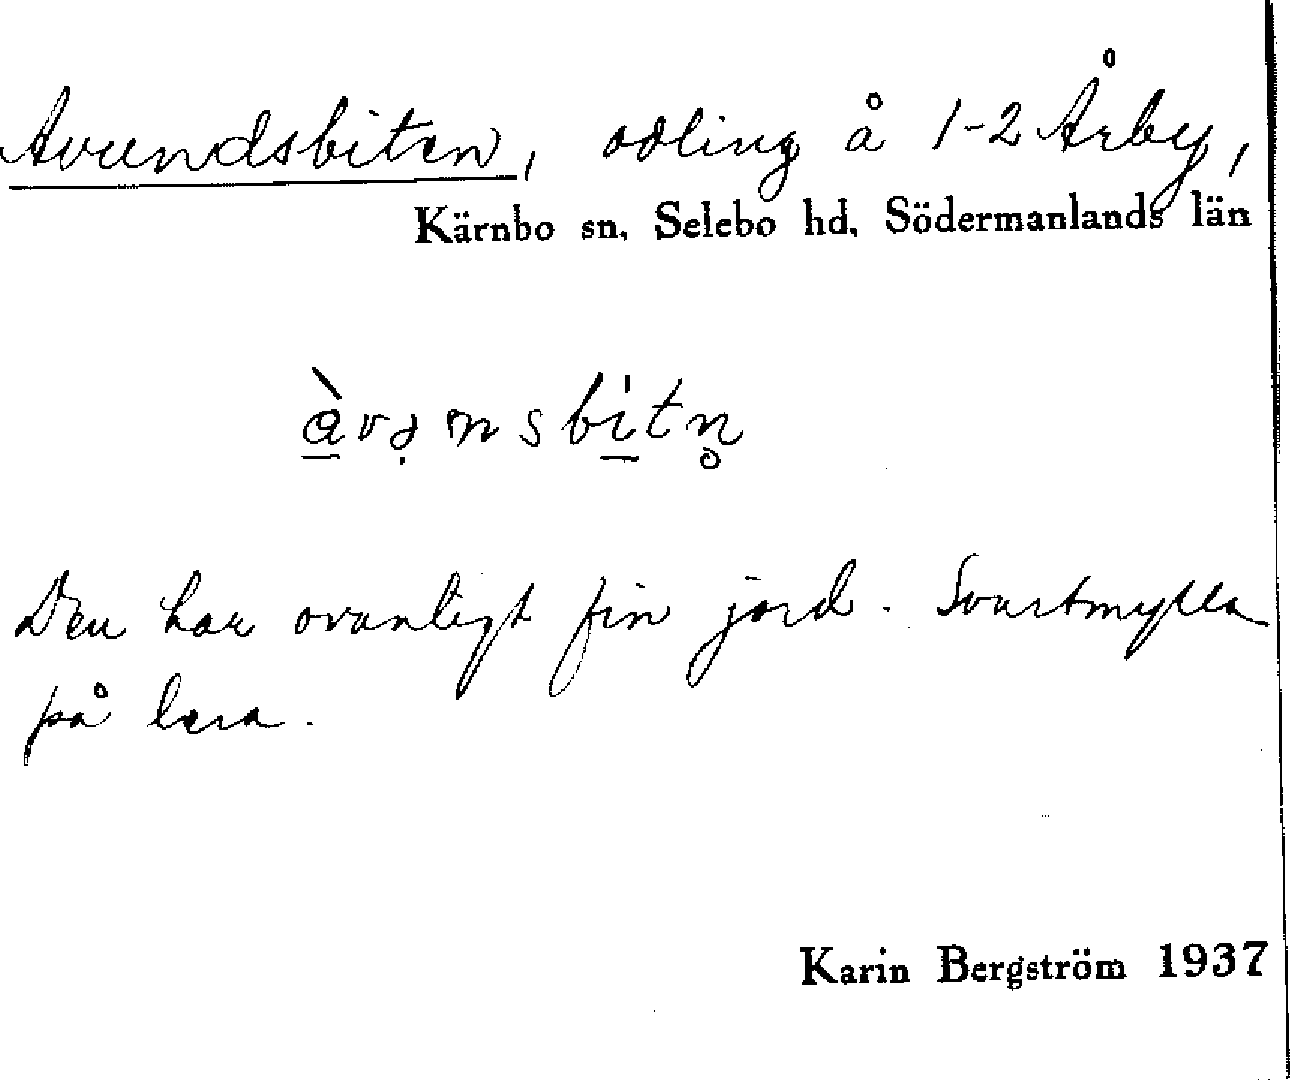 Avundsbiten, odling å 1-2 Årby,
Kärnbo sn, Selebo hd, Södermanlands län
àvənsbitn̥
Den har ovanligt fin jord. Svartmylla
på lera.
Karin Bergström 1937